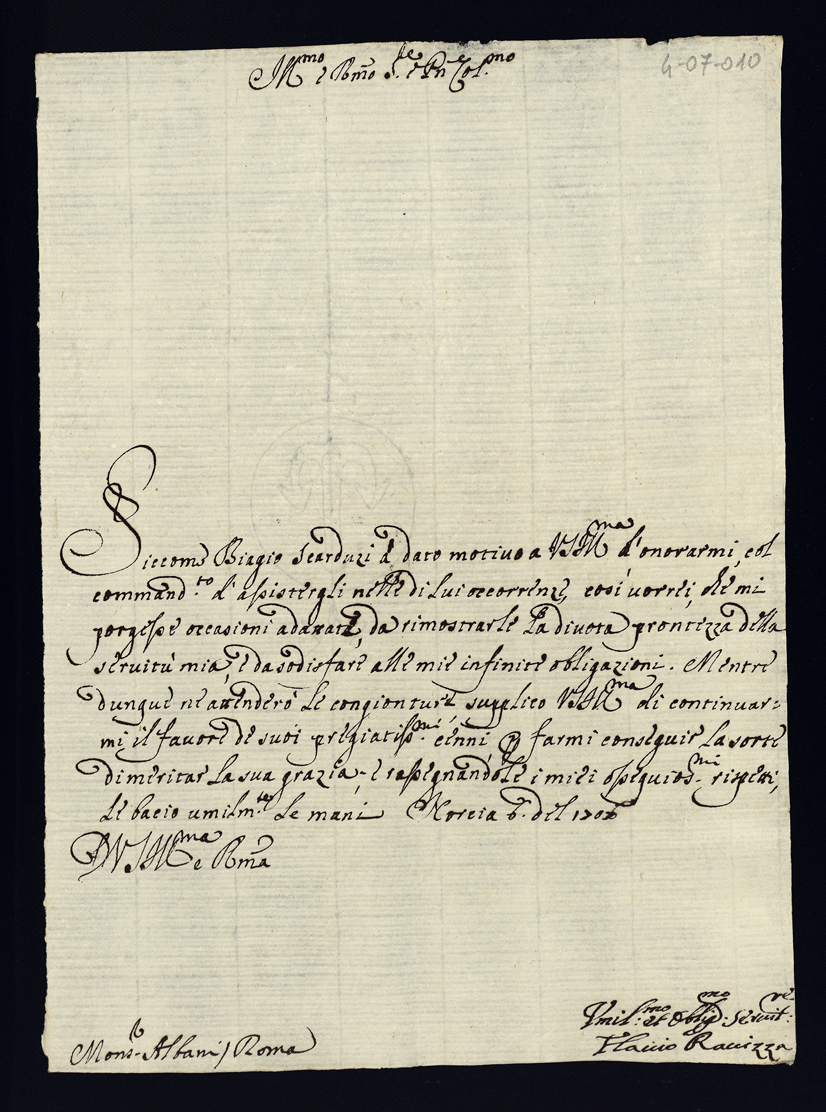 Ill.mo e R.mo Sig.re e Pñe Col.mo
4-07-010
Siccome Biagio Scarduzi à dato motivo a VSIll.ma d'onorarmi, col
command.to d'assistergli nelle di lui occorrenze, così vorrei, che mi
porgesse occasioni adattate, da rimostrarle la divota prontezza della
servitù mia, e da sodisfare alle mie infinite obligazioni. Mentre
dunque ne attenderò le congionture, supplico VSIll.ma di continuar=
mi il favore de suoi pregiatiss.mi cenni, p farmi conseguir la sorte
di meritar la sua grazia, e rassegnandole i miei ossequios.mi rispetti,
le bacio umilm.te le mani Norcia 6. del 170
D VSIll.ma e R.ma
Mons.r Albani / Roma
Vmil.mo et Oblig.mo Servit.re
Flavio Ravizza